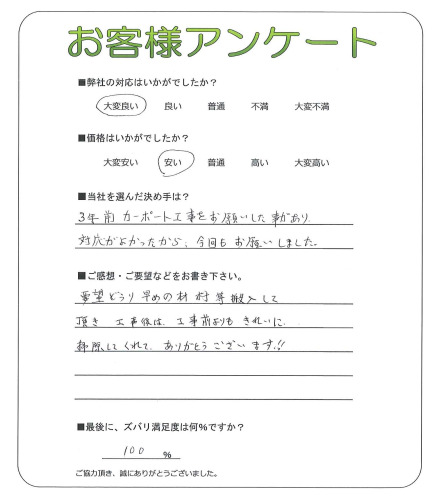 お客様アンケート
■弊社の対応はいかがでしたか？
大変良い 良い 普通 不満 大変不満
■価格はいかがでしたか？
大変安い 安い 普通 高い 大変高い
■当社を選んだ決め手は？
3年前 カーポート工事をお願いした事があり
対応がよかったから、今回もお願いしました。
■ご感想・ご要望などをお書き下さい。
要望どうり 早めの材料等搬入して
頂き 工事後は、工事前よりも きれいに
掃除してくれて、ありがとうございます!!
■最後に、ズバリ満足度は何％ですか？
100 ％
ご協力頂き、誠にありがとうございました。